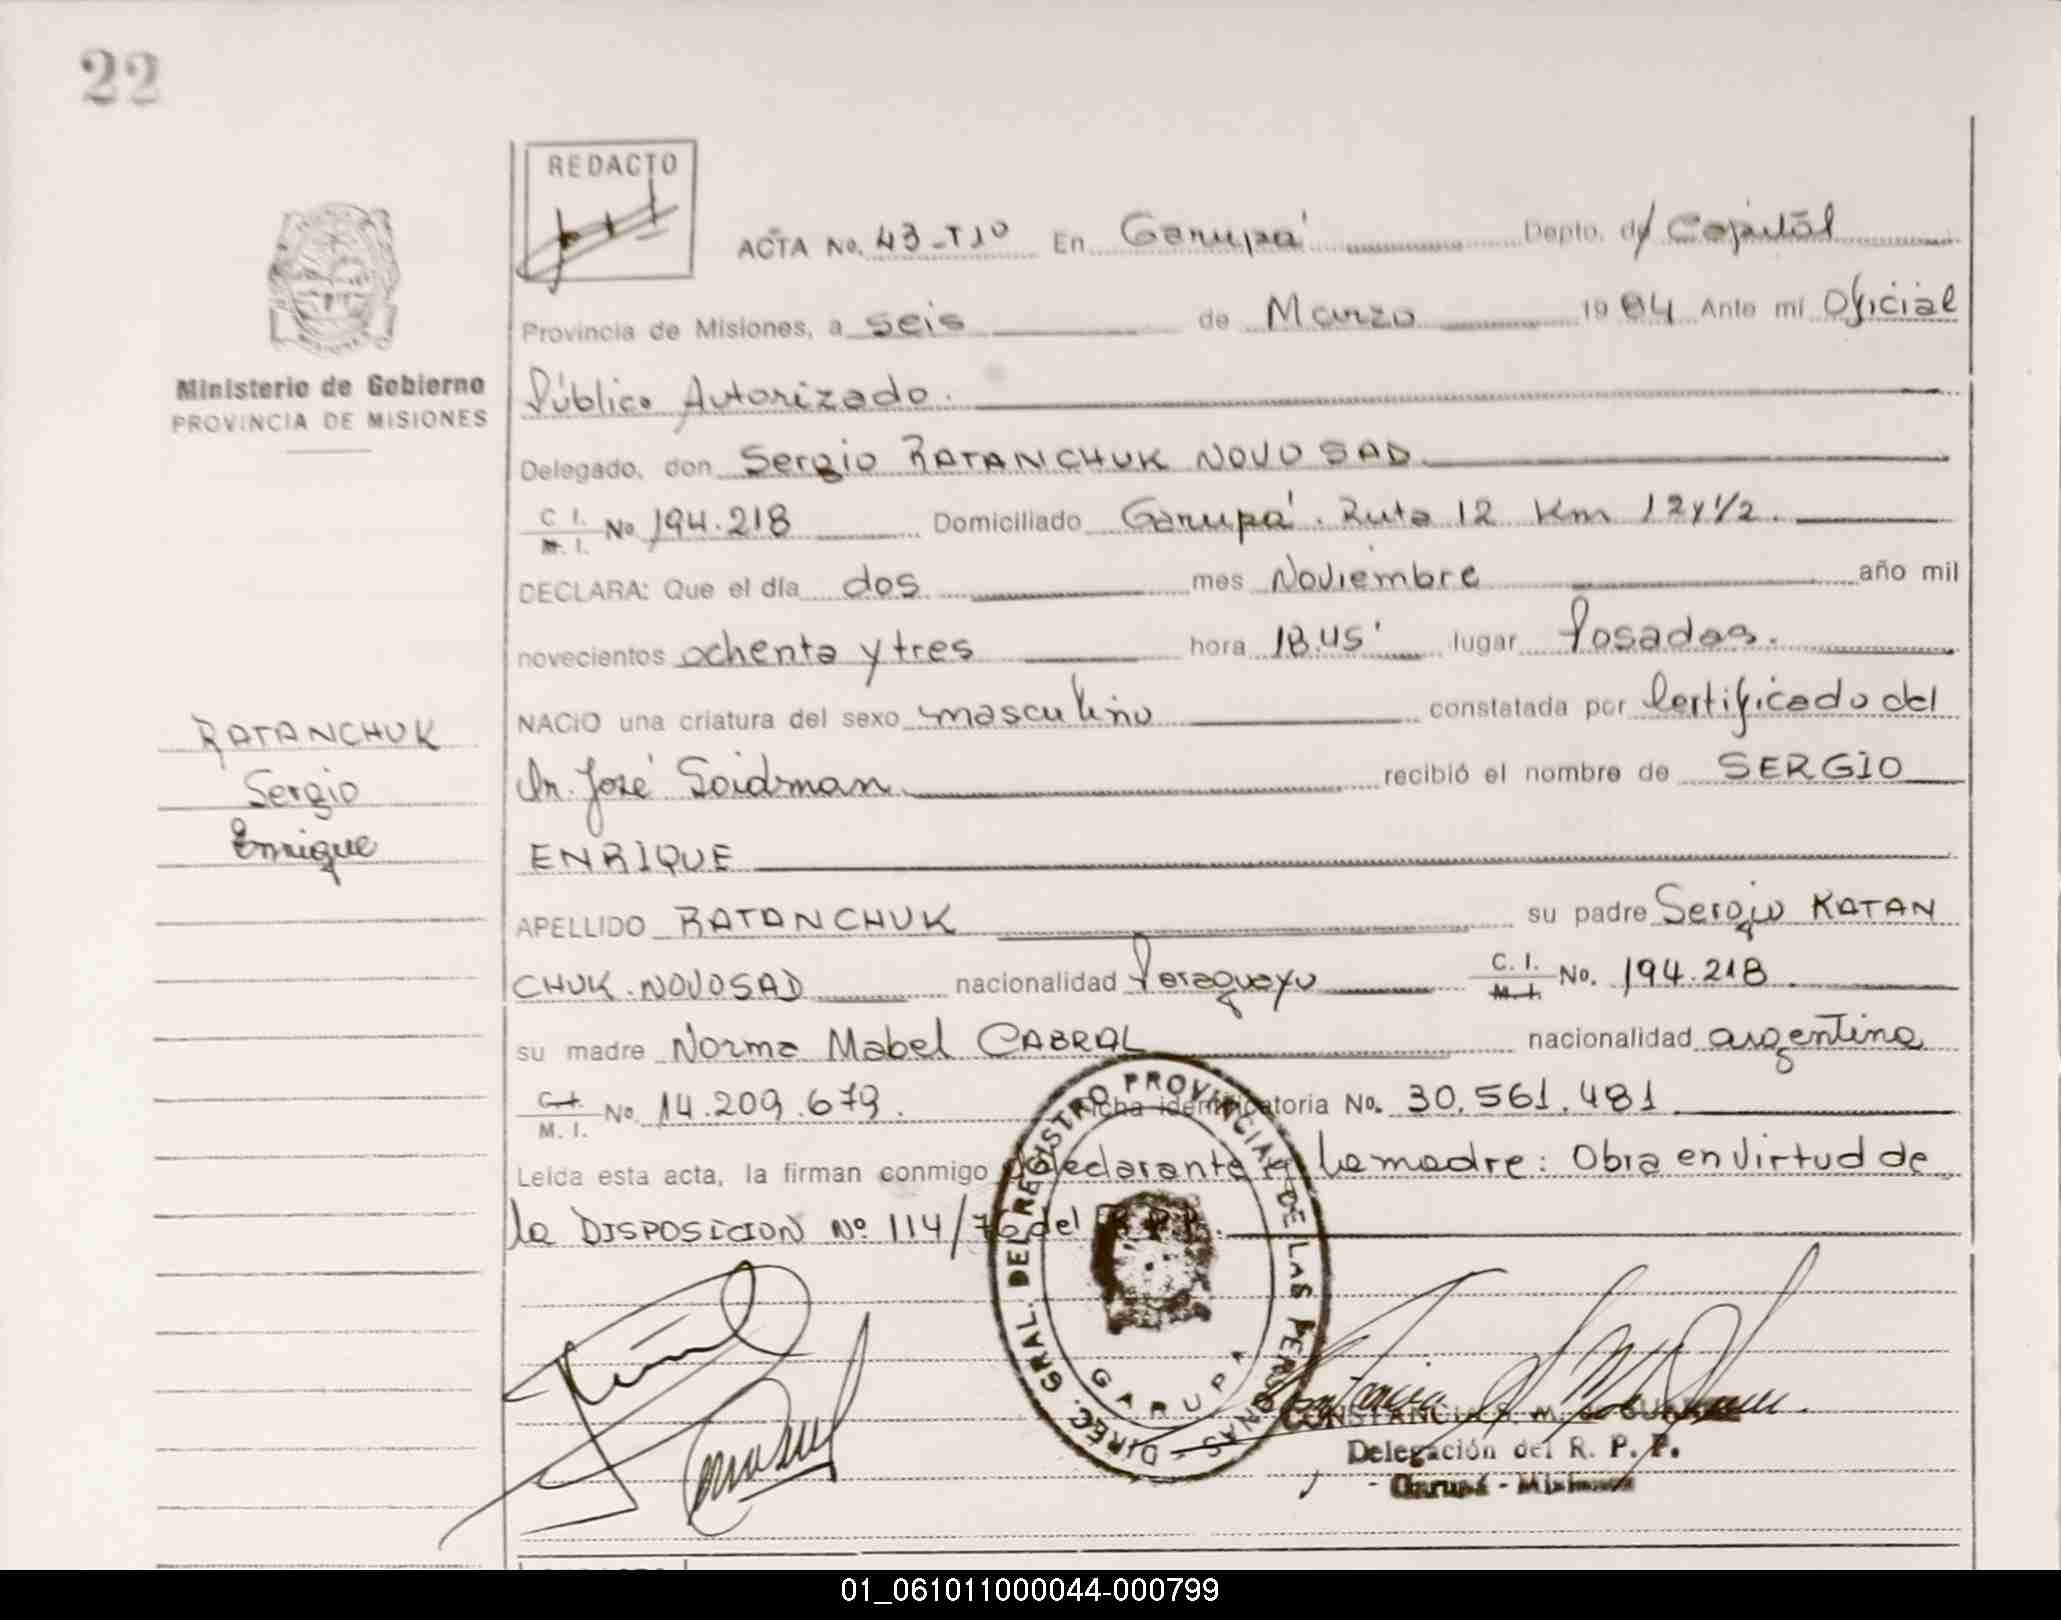 22
REDACTO
ACTA No. 43-TJº En Garupá Depto. de Capital
Provincia de Misiones, a seis de Marzo 1984 Ante mí Oficial
Ministerio de Gobierno
PROVINCIA DE MISIONES
Público Autorizado.
Delegado, don Sergio RATANCHUK NOVOSAD
C. I. M. I. No. 194.218 Domiciliado Garupá. Ruta 12 Km 12y1/2.
DECLARA: Que el día dos mes Noviembre año mil
novecientos ochenta y tres hora 18.45' lugar Posadas.
NACIO una criatura del sexo masculino constatada por Certificado del
RATANCHUK
Sergio
Enrique
Dr. José Soidman recibió el nombre de SERGIO
ENRIQUE
APELLIDO RATANCHUK su padre Sergio RATAN
CHUK.NOVOSAD nacionalidad Paraguayo C. I. M. I. No. 194.218
su madre Norma Mabel CABRAL nacionalidad argentina
C. I. M. I. No. 14.209.679. Ficha identificatoria No. 30.561.481
Leída esta acta, la firman conmigo declarante y la madre: Obra en virtud de
la DISPOSICION Nº 114/76 del R.P.P.
DIREC. GRAL. DEL REGISTRO PROVINCIAL DE LAS PERSONAS
GARUPA
CONSTANCIA
Delegación del R. P. P.
- Garupá - Misiones
01_061011000044-000799